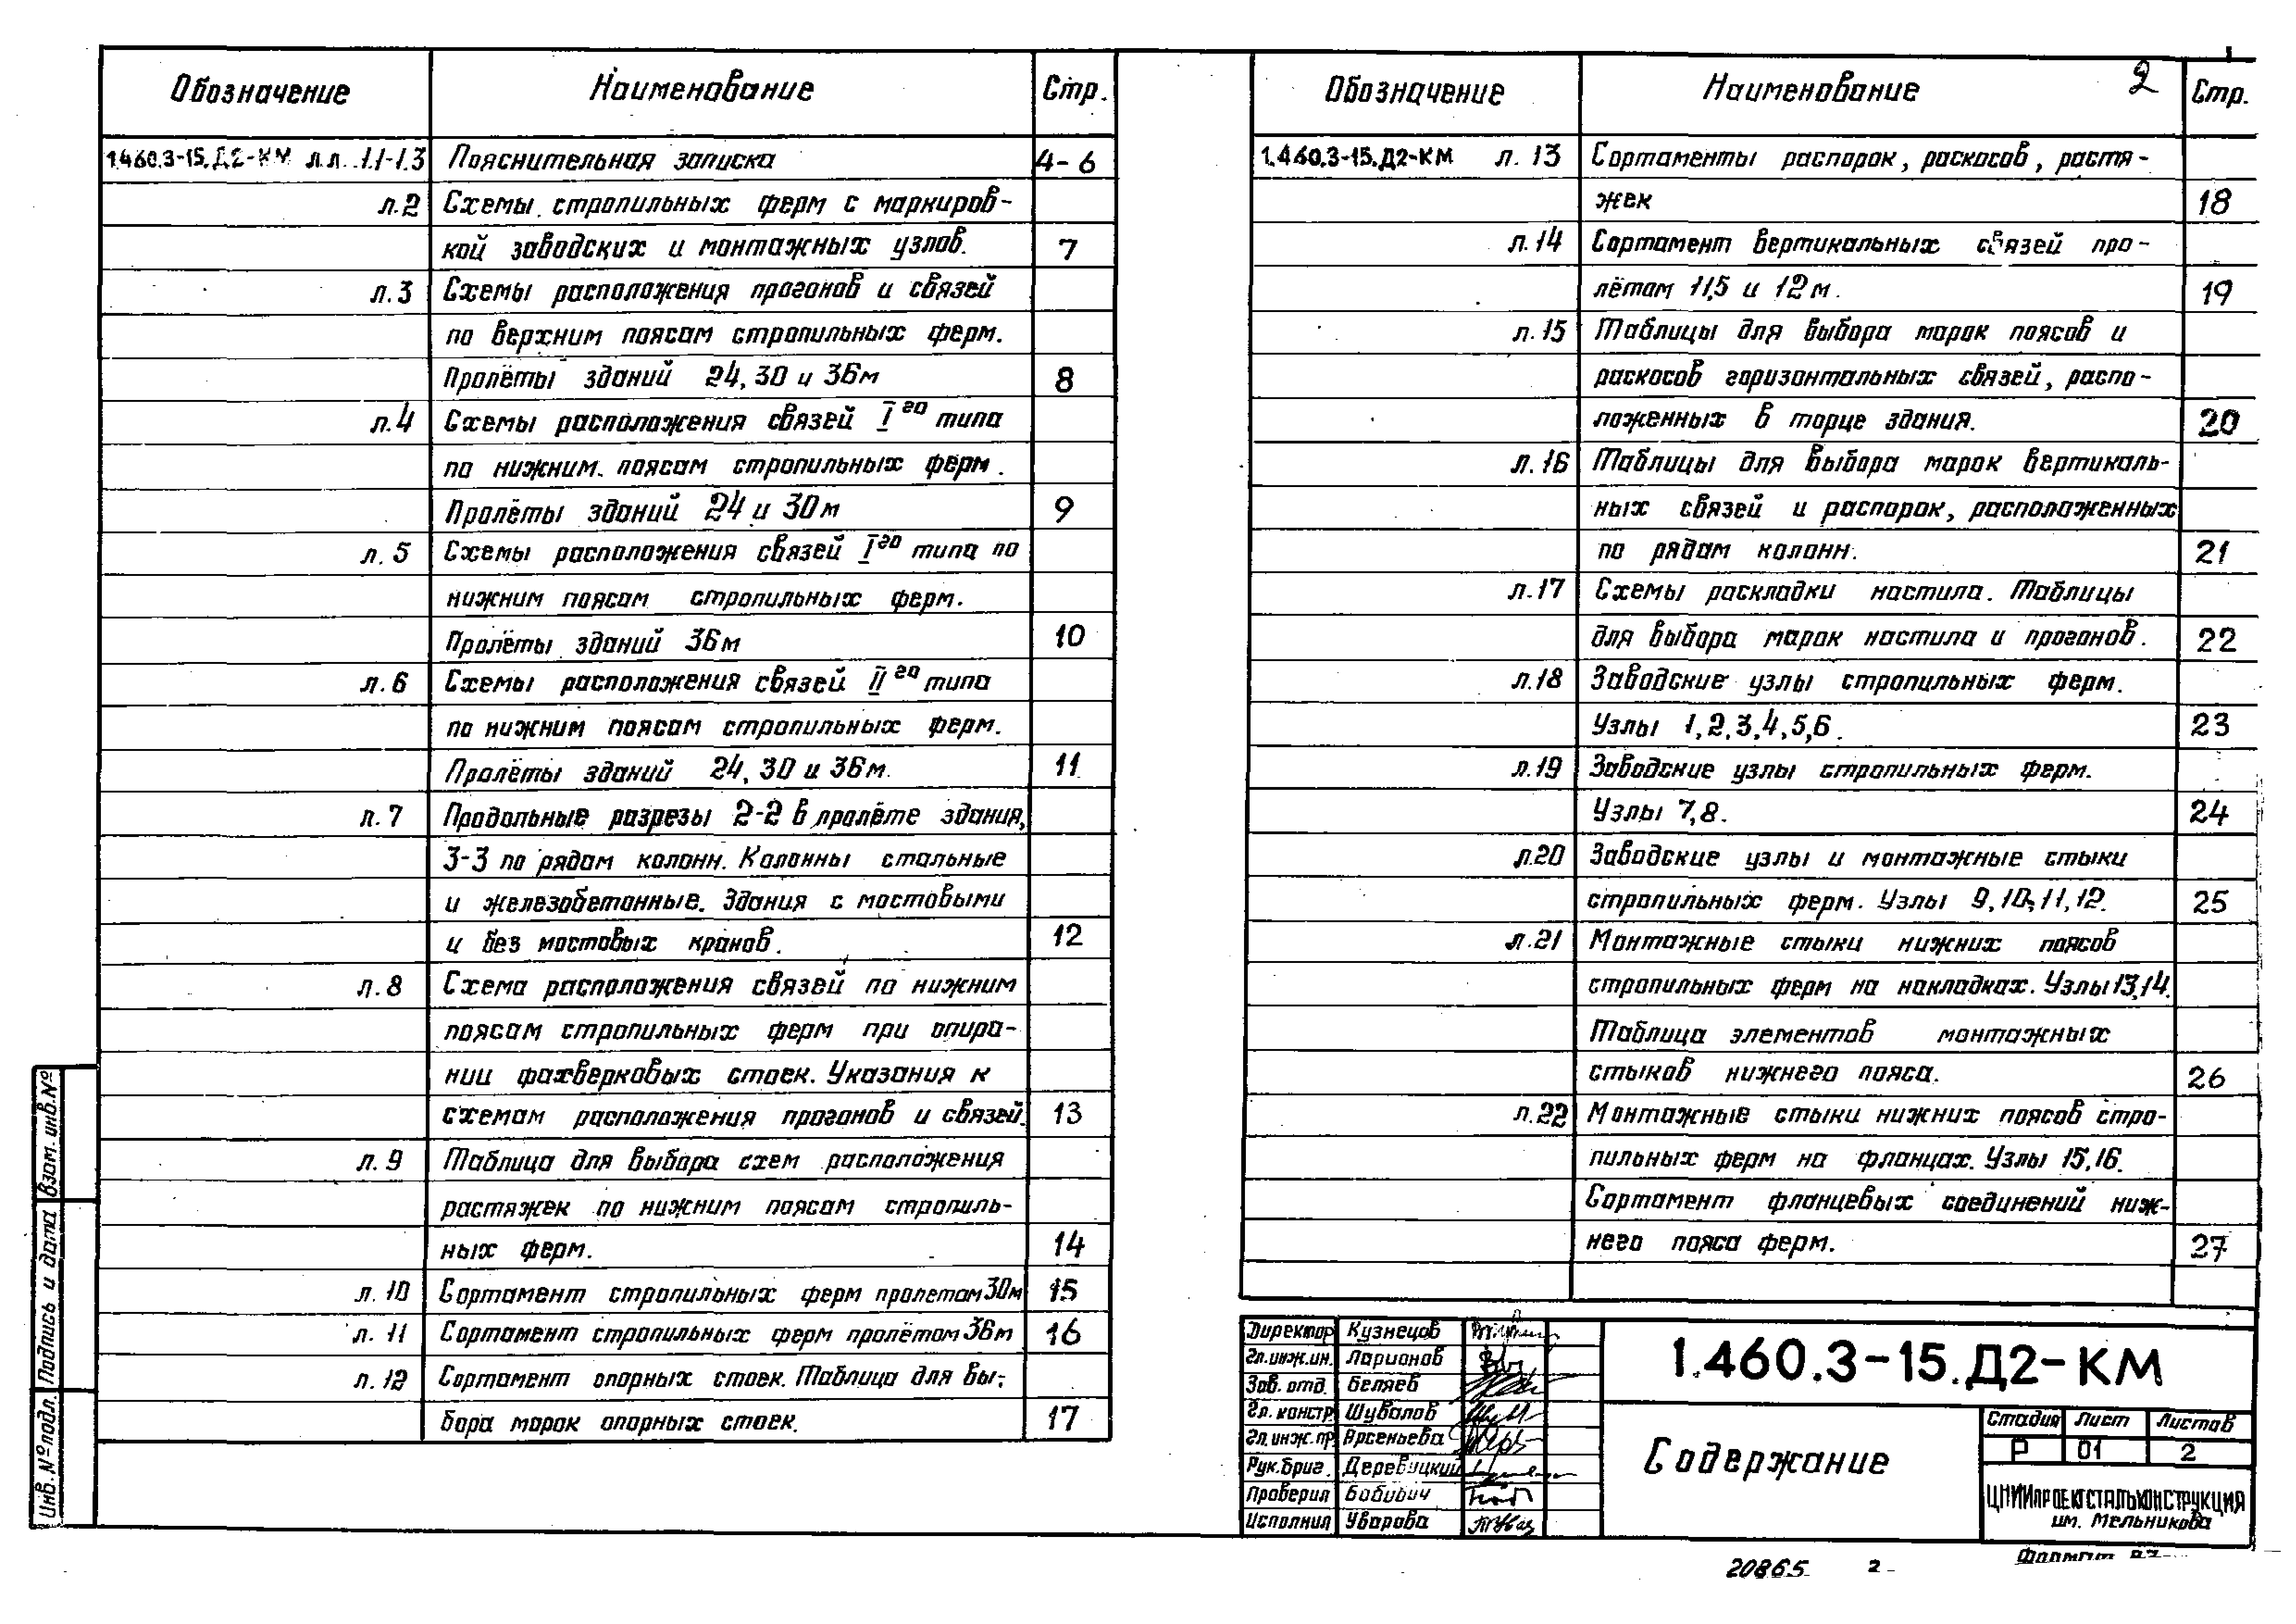 2
Обозначение Наименование Стр.
1.460.3-15.Д2-КМ л.л. 1.1-1.3 Пояснительная записка 4-6
л.2 Схемы стропильных ферм с маркиров-
кой заводских и монтажных узлов. 7
л.3 Схемы расположения прогонов и связей
по верхним поясам стропильных ферм.
Пролёты зданий 24, 30 и 36м 8
л.4 Схемы расположения связей Iго типа
по нижним поясам стропильных ферм.
Пролёты зданий 24 и 30м 9
л. 5 Схемы расположения связей Iго типа по
нижним поясам стропильных ферм.
Пролёты зданий 36м 10
л. 6 Схемы расположения связей IIго типа
по нижним поясам стропильных ферм.
Пролёты зданий 24, 30 и 36м. 11
л. 7 Продольные разрезы 2-2 в пролёте здания,
3-3 по рядам колонн. Колонны стальные
и железобетонные. Здания с мостовыми
и без мостовых кранов. 12
л. 8 Схема расположения связей по нижним
поясам стропильных ферм при опира-
нии фахверковых стоек. Указания к
схемам расположения прогонов и связей. 13
л. 9 Таблица для выбора схем расположения
растяжек по нижним поясам стропиль-
ных ферм. 14
л. 10 Сортамент стропильных ферм пролетом 30м 15
л. 11 Сортамент стропильных ферм пролётом 36м 16
л. 12 Сортамент опорных стоек. Таблица для вы-
бора марок опорных стоек. 17
Обозначение Наименование Стр.
1.460.3-15.Д2-КМ л. 13 Сортаменты распорок, раскосов, растя-
жек 18
л. 14 Сортамент вертикальных связей про-
лётам 11,5 и 12м. 19
л. 15 Таблицы для выбора марок поясов и
раскосов горизонтальных связей, распо-
ложенных в торце здания. 20
л. 16 Таблицы для выбора марок вертикаль-
ных связей и распорок, расположенных
по рядам колонн. 21
л. 17 Схемы раскладки настила. Таблицы
для выбора марок настила и прогонов. 22
л. 18 Заводские узлы стропильных ферм.
Узлы 1, 2, 3, 4, 5, 6. 23
л. 19 Заводские узлы стропильных ферм.
Узлы 7, 8. 24
л. 20 Заводские узлы и монтажные стыки
стропильных ферм. Узлы 9, 10, 11, 12. 25
л. 21 Монтажные стыки нижних поясов
стропильных ферм на накладках. Узлы 13, 14.
Таблица элементов монтажных
стыков нижнего пояса. 26
л. 22 Монтажные стыки нижних поясов стро-
пильных ферм на фланцах. Узлы 15, 16.
Сортамент фланцевых соединений ниж-
него пояса ферм. 27
Директор Кузнецов
Гл.инж.ин. Ларионов
Зав. отд. Беляев
Гл. констр Шувалов
Гл.инж.пр. Арсеньева
Рук.бриг. Деревицкий
Проверил Бабович
Исполнил Уварова
1.460.3-15.Д2-КМ
Содержание
Стадия Лист Листов
Р 01 2
ЦНИИпроектстальконструкция
им. Мельникова
20865 2
Формат
Инв. № подл. Подпись и дата Взам. инв. №